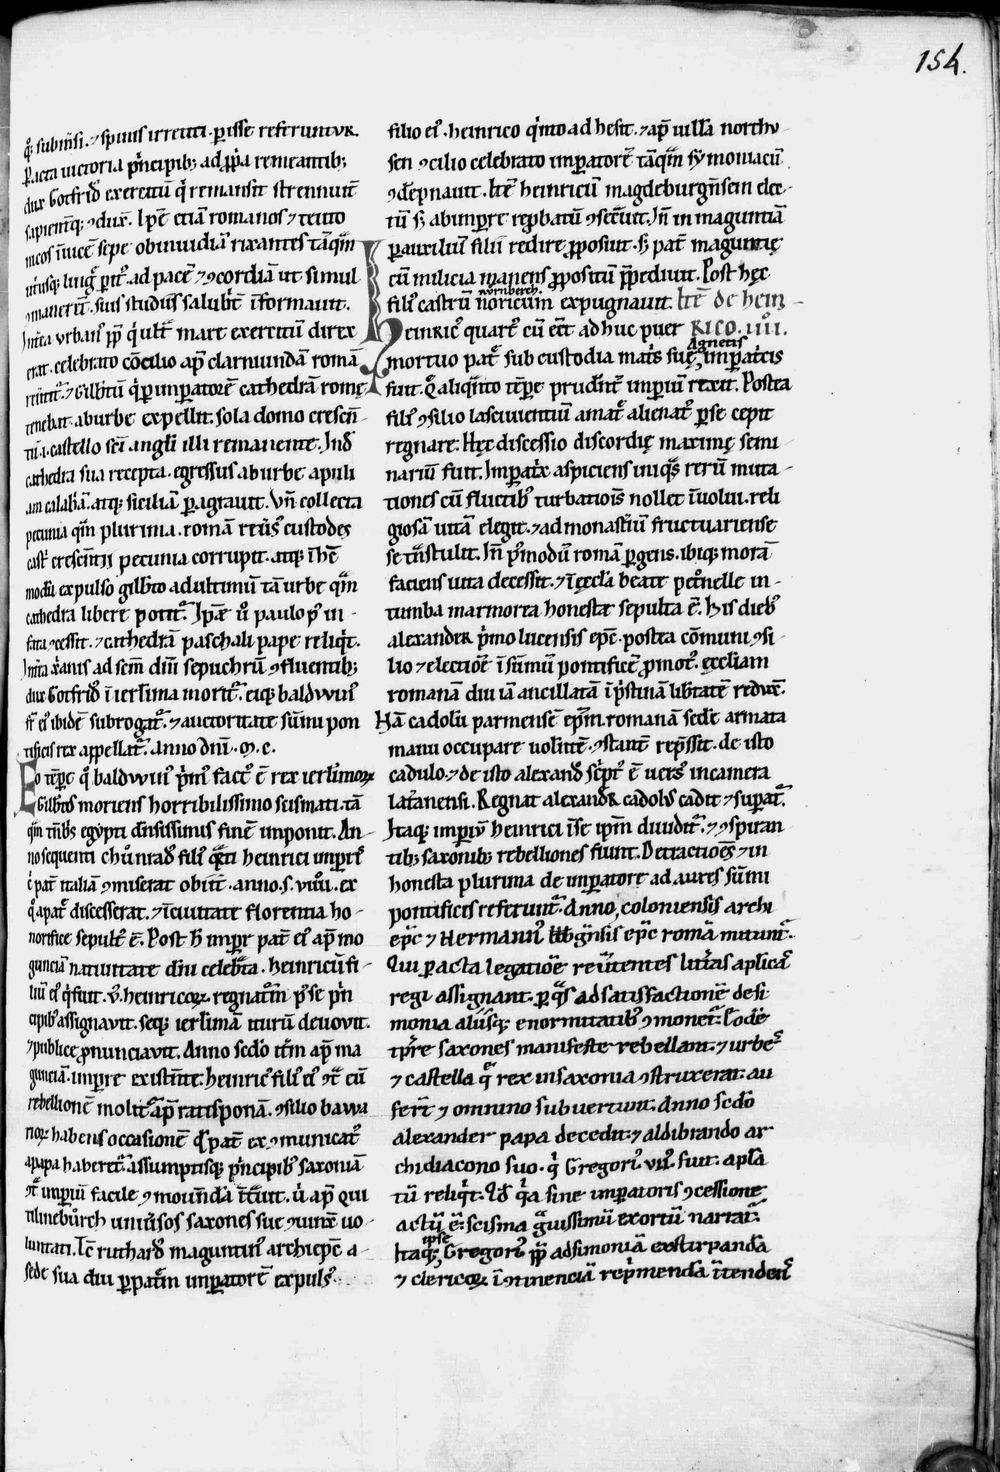 154.
qͦ; submisi. ⁊ spinis irretiti. ꝑisse referuntur.
ꝑacta uictoria pͥncipib; ad ꝓpͥa remeantib;
dux Gotfridꝰ exercitũ qͥ remansit strennuitẽ
sapientẽq; ꝯduxͭ. Ipẽ etiã romanos ⁊ teuto
nicos inuicẽ sepe ob inuidiã rixantes tãqᷓm
utͥusq; linguͤ ꝑitꝰ. ad pacẽ ⁊ ꝯcordiã ut simul
ꝯmanerẽt. suis studiis salubͥt informauit.
Intͤa urbanꝰ pp̃ qͥ ultͥ mare exercitũ direx
erat. celebrato cõcilio ap̃ clarmundã romã
reũtitͬ. ⁊ Gilbtũ qͥ ꝑ imꝑatorẽ cathedrã romę
tenebat. ab urbe expellit. sola domo crescẽ
tii. i. castello sc̃i angli illi remanente. Indͤ
cathedra sua recepta. egressus ab urbe apuli
am calabͥã. atq; siciliã ꝑagrauit. Vñ collecta
pecunia qᷓm plurima. romã reũsꝰ custodes
castͥ crescẽtii pecunia corrupit. atq; in hẽ
modũ expulso gilbto ad ultimũ tã urbe qᷓm
cathedra libere potitͬ. Ipse uͦ paulo pꝰ in
fata ꝯcessit. ⁊ cathedrã paschali pape reliqͥt.
Intͤa xᷓnis ad scm̃ dñi sepuchrũ ꝯfluentib;
dux Gotfridꝰ in ierlima moritͬ. eiq; baldwinꝰ
fr̃ eiꝰ ibidẽ subrogatͬ. ⁊ auctoritate sũmi pon
tificis rex appellatͬ. Anno dñi. ꝳ. c.
Eo tẽpͤ qͦ baldwinꝰ pͥmꝰ factꝰ ẽ rex ierlimoꝝ
Gilbtͦs moriens horribilissimo scismati. tã
qᷓm tñbͥs egypti dẽsissimis finẽ imponit. An-
no sequenti chůnradꝰ filiꝰ qᷓrti heinrici impͬis
ĉ patͤ italiã ꝯmiserat obiit. anno. s. viiii. ex
qͦ a patͤ discesserat. ⁊ in ciuitate florentia ho-
norifice sepultꝰ ẽ. Post h̃ impͬ patͤ eiꝰ ap̃ mo
gunciã natiuitate dñi celebͥta. heinricũ fi-
liũ eiꝰ qͥ fuit. v̊. heinricoꝝ. regnatͬm pꝰ se pͥn
cipibꝰ assignauit. seq; ierlimã iturũ deuouit.
⁊ publice ꝓnunciauit. Anno scd̃o itͬm ap̃ ma
gunciã. impͬe existẽte. heinricꝰ filiꝰ eiꝰ ꝯͭ eũ
rebellionẽ molitͬ ap̃ ratisponã. ꝯsilio bawa
rioꝝ habens occasionẽ qͦd patͤ exꝯmunicatꝰ
a papa haberetͬ. assumptisq; pͥncipibꝰ saxoniã
ꝯͭ impiũ facile ꝯmouͤndã itͤuit. uͥ ap̃ qui
tiline bůrch uniũsos saxones sue ꝯiunxͭ uo-
luntati. Itẽ ruthardꝰ maguntinꝰ archiepc̃ a-
sede sua diu ꝑ patͤm imꝑatorẽ expulsꝰ.
filio eiꝰ. heinrico qͥnto adhesit. ⁊ ap̃ uillã northu-
sen ꝯcilio celebrato imꝑatorẽ tãqᷓm symoniacũ
ꝯdẽpnauit. Itẽ heinricũ magdeburgñsem elec-
tũ s; ab imꝑre reꝓbatũ ꝯsecͤuit. Iñ in maguntiã
ꝑ auxiliũ filii redire ꝓposuit. s; patͤ magunticę
cũ milicia manens ꝓpositũ p̃pediuit. Post hęc
nörnberch.
filiꝰ castrũ noricum expugnauit. Itẽ de hein-
Heinricꝰ quartꝰ cũ eẽt adhuc puer RICO. IIII.
Agnetis
mortuo patͤ sub custodia matͥs suę, imꝑatͥcis
fuit. Qᷓ aliqᷓnto tẽpͤ prudẽtͤ imꝑiũ rexit. Postea
filiꝰ ꝯsilio lasciuientiũ a matͤ alienatꝰ ꝑ se cepit
regnare. Hęc discessio discordię maximę semi-
nariũ fuit. Imꝑatͥx aspiciens iniqᷓs rerũ muta-
tiones cũ fluctibꝰ turbatiois̃ nollet inuolui. reli
giosã uitã elegit. ⁊ ad monastͥiũ fructuariense
se tᷓnstulit. Iñ pͦmodũ romã ꝑgens. ibiq; morã
faciens uita decessit. ⁊ in ęccl̃a beate petͦnelle in-
tumba marmorea honeste sepulta ẽ. His diebꝰ
alexander pͥmo lucensis epc̃. postea cõmuni ꝯsi-
lio ⁊ electiõe in sũmũ pontificẽ ꝓmotꝰ. ęccl̃iam
romanã diu iã ancillatã in pͥstinã libͭatẽ reduxͭ.
Nã cadolũ parmensẽ ep̃m. romanã sedẽ armata
manu occupare uolẽtẽ. ꝯstantͤ rep̃ssit. de isto
cadulo. ⁊ de isto alexandͦ scͥptꝰ ẽ uersꝰ in camera
latͤanensi. Regnat alexandͤr cadolus cadit ⁊ suꝑatͬ.
Itaq; imꝑiũ heinrici in se ip̃m diuiditͬ. ⁊ ꝯspiran
tib; saxonib; rebelliones fiunt. Detractiões ⁊ in
honesta plurima de imꝑatore ad aures sũmi
pontificis referuntͬ. Anno, coloniensis archi
epc̃ ⁊ Hermannꝰ bbbgñsis epc̃ romã mittuntͬ.
Qui ꝑacta legatiõe reũtentes littͤas aplicã
regi assignant. ꝑ qᷓs ad satisfactionẽ de si
monia aliisq; enormitatibꝰ ꝯmonetͬ. Eodẽ
tpͬe saxones manifeste rebellant. ⁊ urbeͫ
⁊ castella qͤ rex in saxonia ꝯstruxerat. au
ferr̃t ⁊ omnino subuertunt. Anno scd̃o
alexander papa decedit. ⁊ aldibrando ar
chidiacono suo. qͥ Gregoriꝰ viiꝰ. fuit. aplã
tũ reliqͥt. Id̃ qͥa sine imꝑatoris ꝯcessione
actũ ẽ. scisma gᷓuissimũ exortũ narratͬ.
ipse
Itaq; Gregoriꝰ pp̃ ad simoniã exstirpandã
⁊ clericoꝝ inꝯtinenciã repͥmendã intendẽs